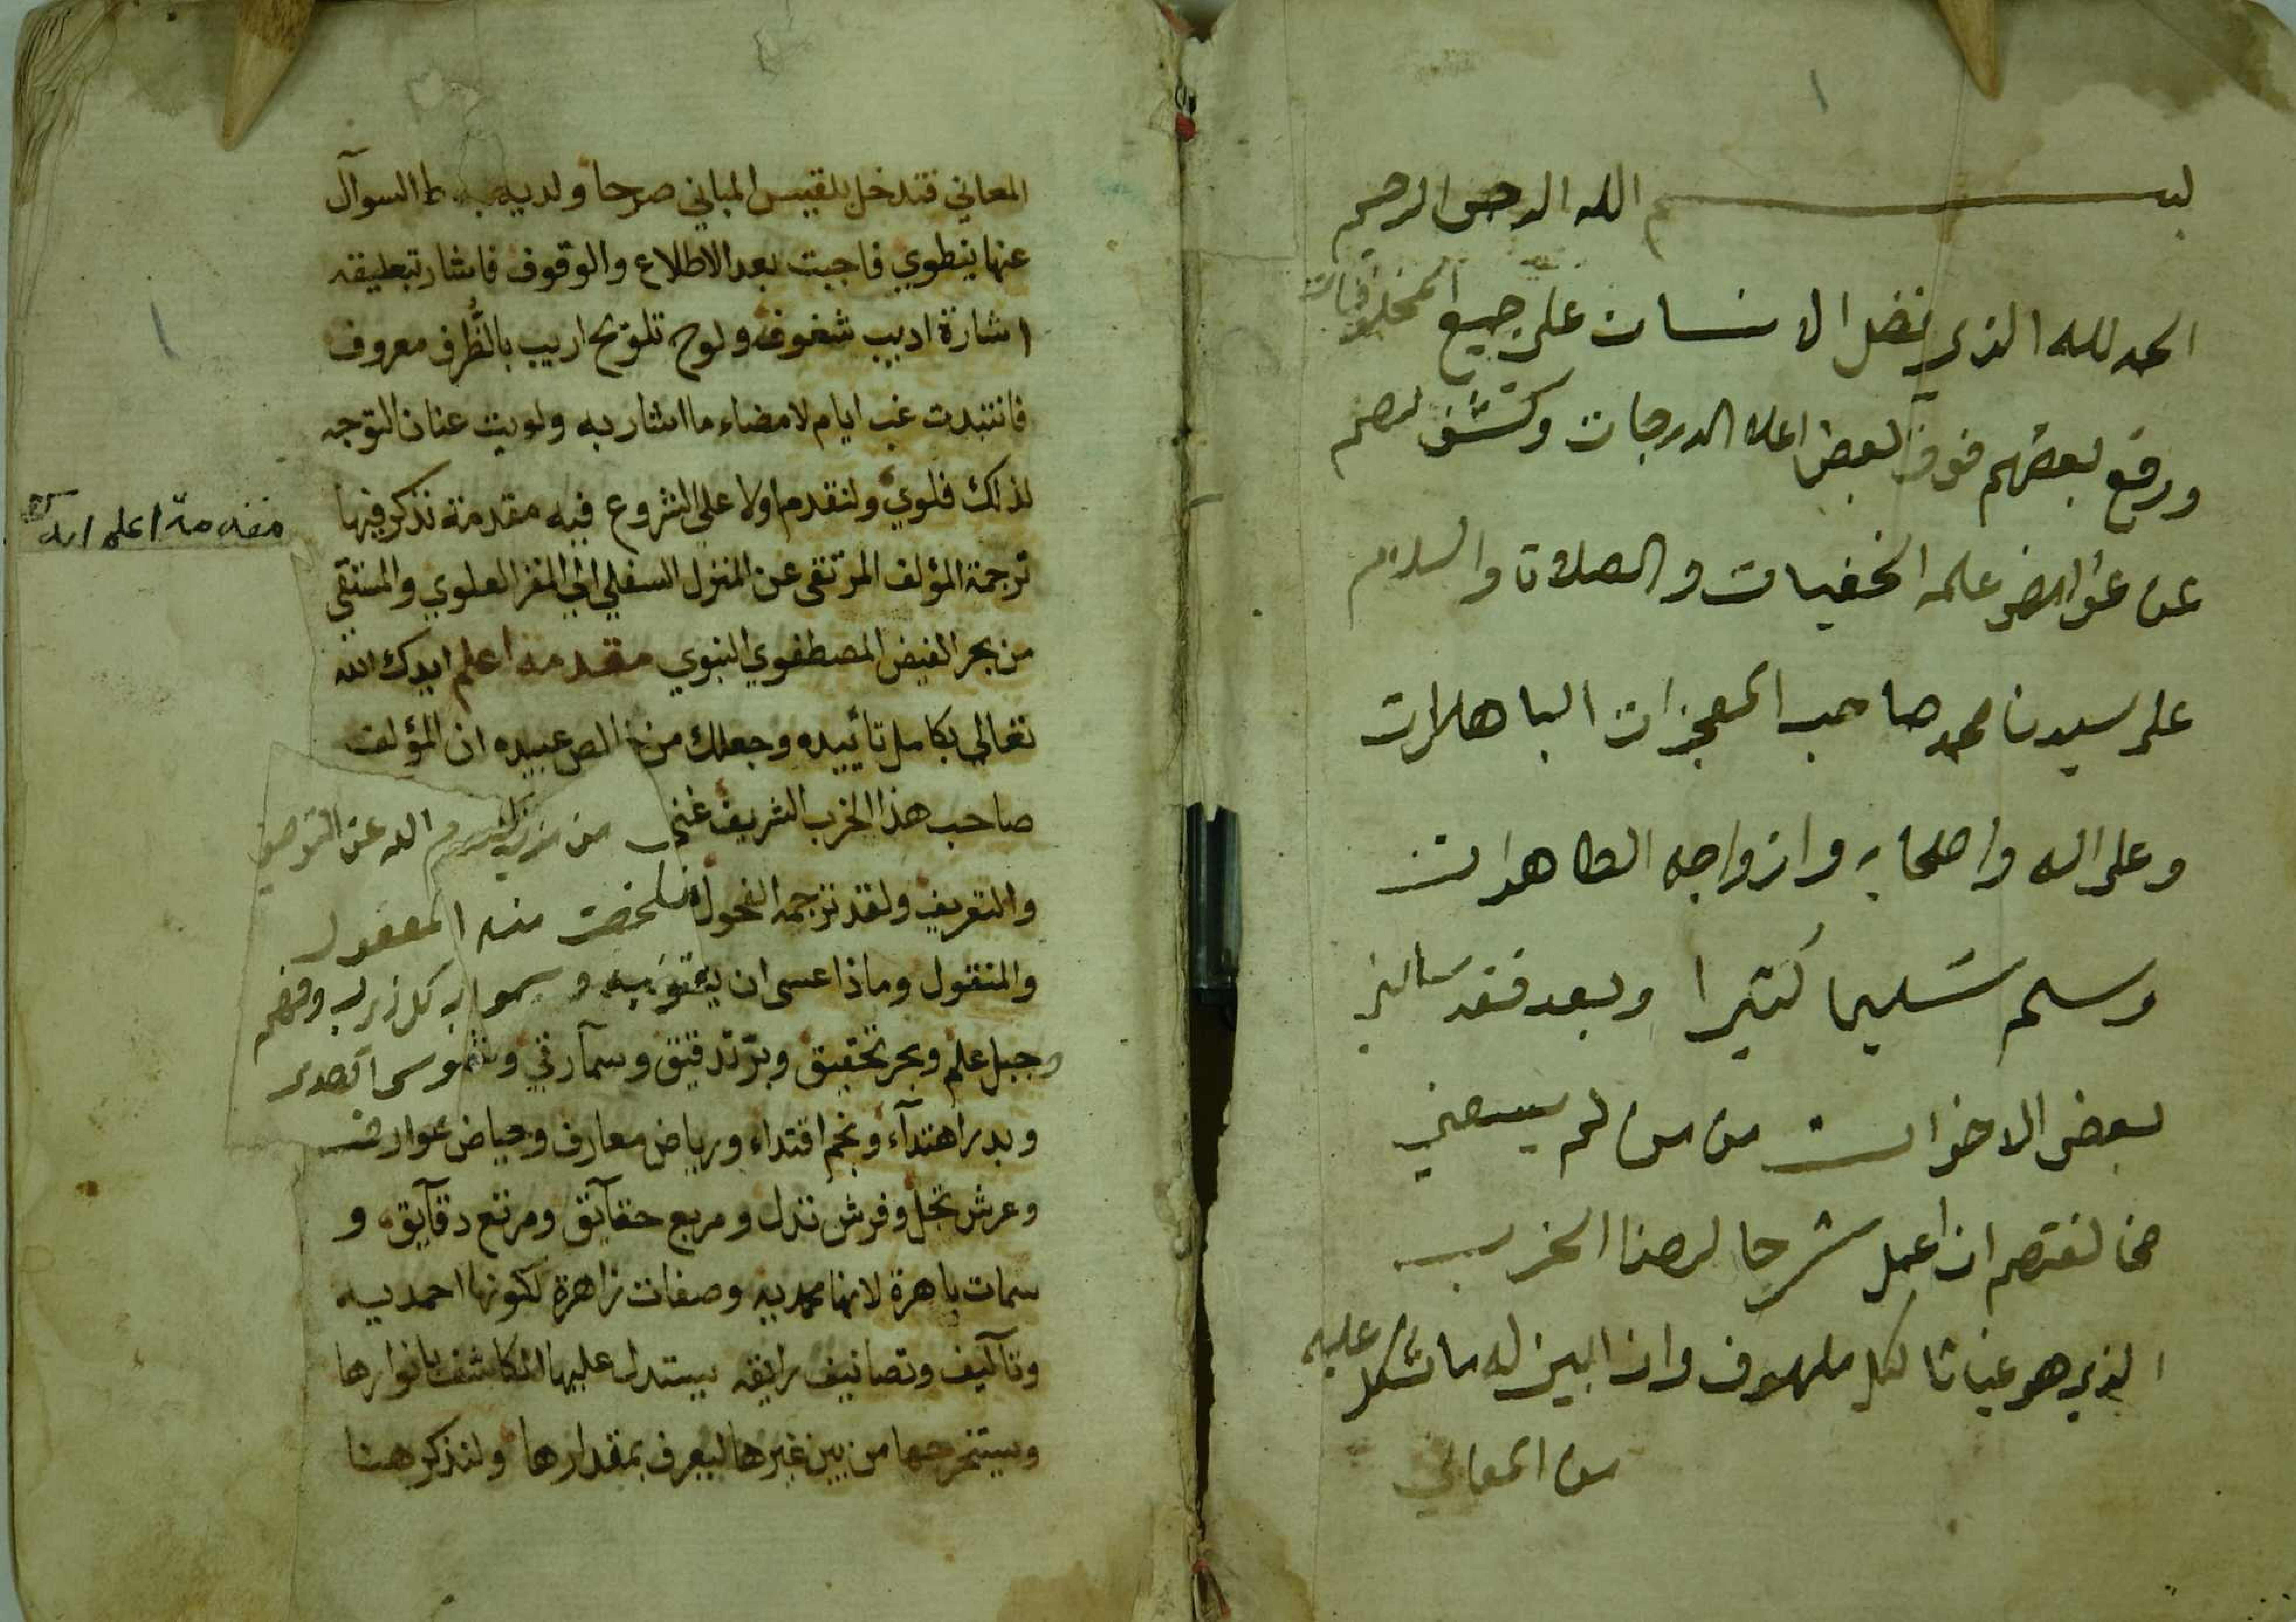 ١
بسم الله الرحمن الرحيم
الحمد لله الذي فضل الانسان على جميع المخلوقات
ورفع بعضهم فوق بعض اعلا الدرجات وكشف لهم
عن غوامض علمه الخفيات والصلاة والسلام
على سيدنا محمد صاحب المعجزات الباهرات
وعلى اله واصحابه وازواجه الطاهرات
وسلم تسليما كثيرا وبعد فقد سالني
بعض الاخوان من من لم يسعني
مخالفتهم ان اعمل شرحا لهذا الحزب
الذي هو غياثا لكل ملهوف وان ابين له ما شكل عليه
من المعاني
المعاني فتدخل بلقيس المباني صرحا ولديه السوآل
عنها ينطوي فاجبت بعد الاطلاع والوقوف فاشار بتعليقه
اشارة اديب شغوفه ولوح تلويح اريب بالظُّرف معروف
فانتبدت غب ايام لامضاء ما اشار به ولويت عنان التوجه
لذلك فلوي ولنقدم اولا على الشروع فيه مقدمة نذكر فيها
ترجمة المؤلف المرتقى عن المنزل السفلي الى المقر العلوي والمستقي
من بحر الفيض المصطفوي النبوي مقدمه اعلم ايدك الله
تعالى بكامل تأييده وجعلك من خالص عبيده ان المؤلف
صاحب هذا الحزب الشريف غني من الله عن التوصيف
والتعريف ولقد ترجمه الفحول فلخصت منه المعقول
والمنقول وماذا عسى ان يتفوه به و به كل وفهم
وجبل علم وبحر تحقيق وبرّ تدقيق وسمآ رقي وشموس
وبدر اهتدآء ونجم اقتداء ورياض معارف وحياض عوارف
وعرش تجل وفرش تذلل ومربع حقآيق ومرتع دقآيق و
سمات باهرة لانها محمديه وصفات زاهرة لكونها احمديه
وتآليف وتصانيف رايقه يستدل عليها الكاشف بانوارها
ويستخرجها من بين غيرها ليعرف بمقدارها ولنذكر هنا
مقدمة اعلم ايدك